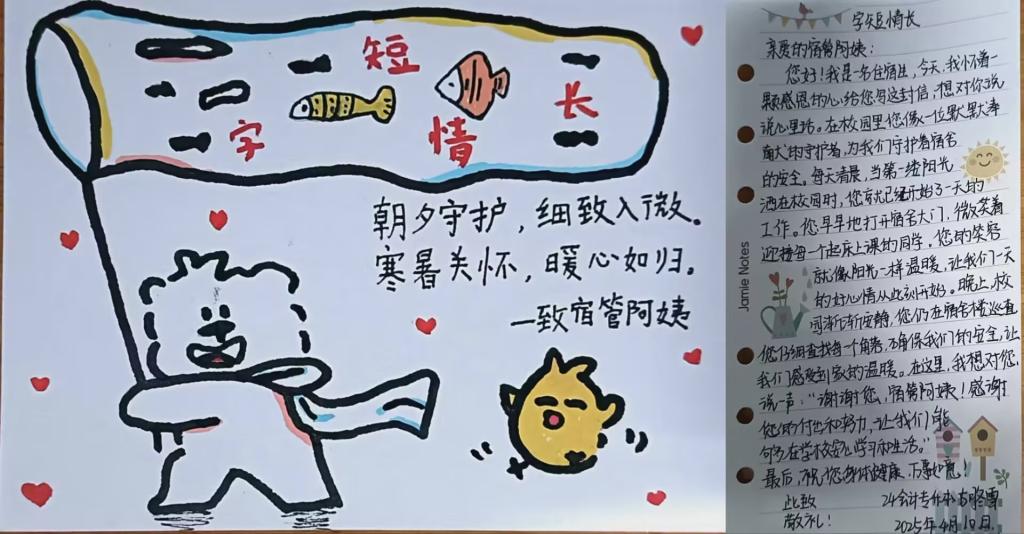 字短情长
朝夕守护，细致入微。
寒暑关怀，暖心如归。
—致宿管阿姨
字短情长
亲爱的宿管阿姨：
您好！我是一名住宿生，今天，我怀着一
颗感恩的心，给您写这封信，想对你说
说心里话。在校园里您像一位默默奉
献的守护者，为我们守护着宿舍
的安全。每天清晨，当第一缕阳光
洒在校园时，您就已经开始了一天的
工作。您早早地打开宿舍大门，微笑着
迎接每一个起床上课的同学。您的笑容
就像阳光一样温暖，让我们一天
的好心情从此刻开始。晚上，校
园渐渐安静，您仍在宿舍楼巡查
您仔细查找每一个角落，确保我们的安全，让
我们感受到家的温暖。在这里，我想对您，
说一声：“谢谢您，宿管阿姨！感谢
您的付出和努力，让我们能
够在学校安心学习和生活。”
最后，祝您身体健康，万事如意！
此致 24会计专升本
敬礼！ 2025年4月10日.
Jamie Notes